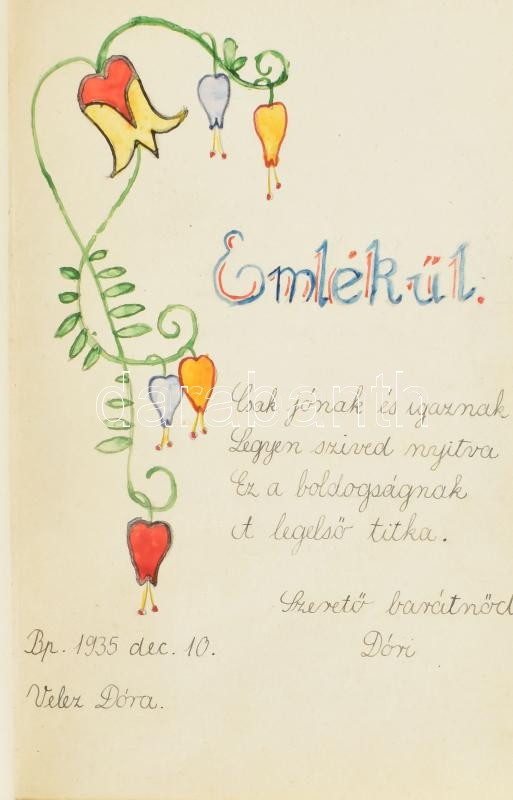 Emlékül.
Csak jónak és igaznak
Legyen szived nyitva
Ez a boldogságnak
A legelső titka.
Szerető barátnőd
Dóri
Bp. 1935 dec. 10.
Velez Dóra.
darabanth